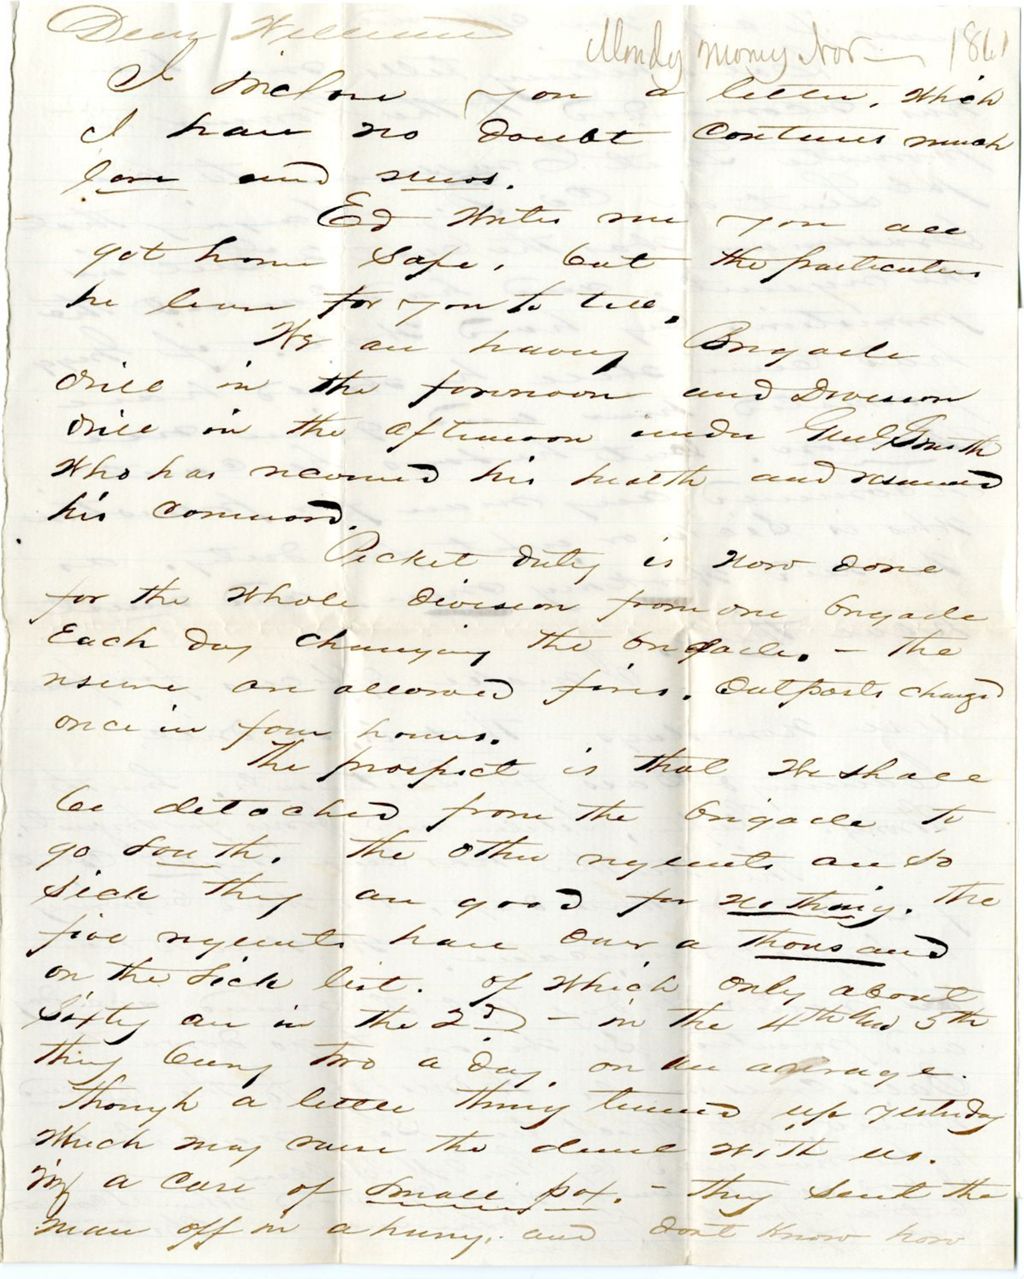 Dear William
Mondy morng Nov 1861
I inclose you a letter, which
I have no doubt contains much
love and news.
Ed writes me you all
got home safe, but the particulars
he leaves for you to tell.
We are having Brigade
drill in the forenoon and Division
drill in the afternoon under Genl Smith
who has recovered his health and resumed
his command.
Picket duty is now done
for the whole division from one brigade
Each day changing the brigade. – the
reserve are allowed fires. Outposts changed
once in four hours.
The prospect is that we shall
be detached from the brigade to
go South. the other regments are so
sick they are good for nothing. the
five regments have over a thousand
on the sick list. of which only about
sixty are in the 2d – in the 4th and 5th
they bury two a day on an average.
though a little thing turned up yesterday
which may raise the devil with us.
a case of small pox. – they sent the
man off in a hurry. and don't know how